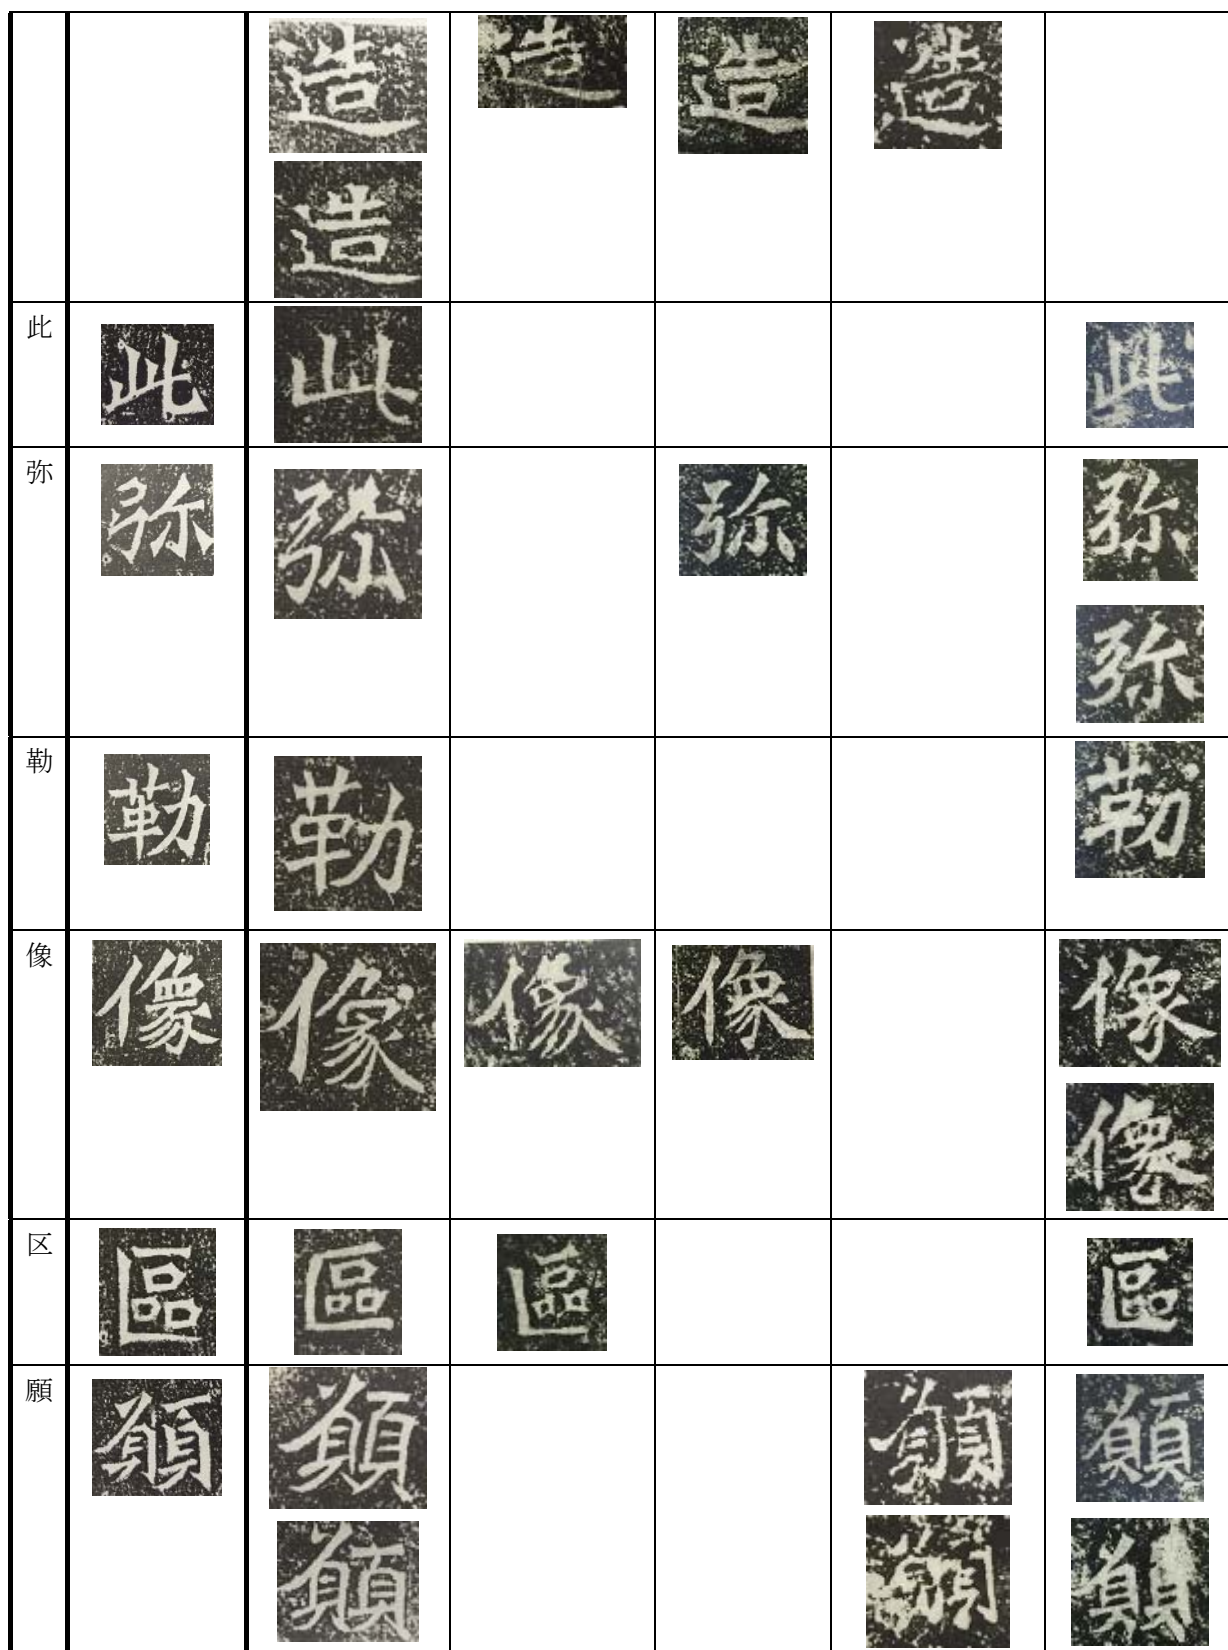 造 造 造 造
造
此 此 此 此
弥 弥 弥 弥 弥
弥
勒 勒 勒 勒
像 像 像 像 像 像
像
区 區 區 區 區
願 願 願 願 願
願 願 願